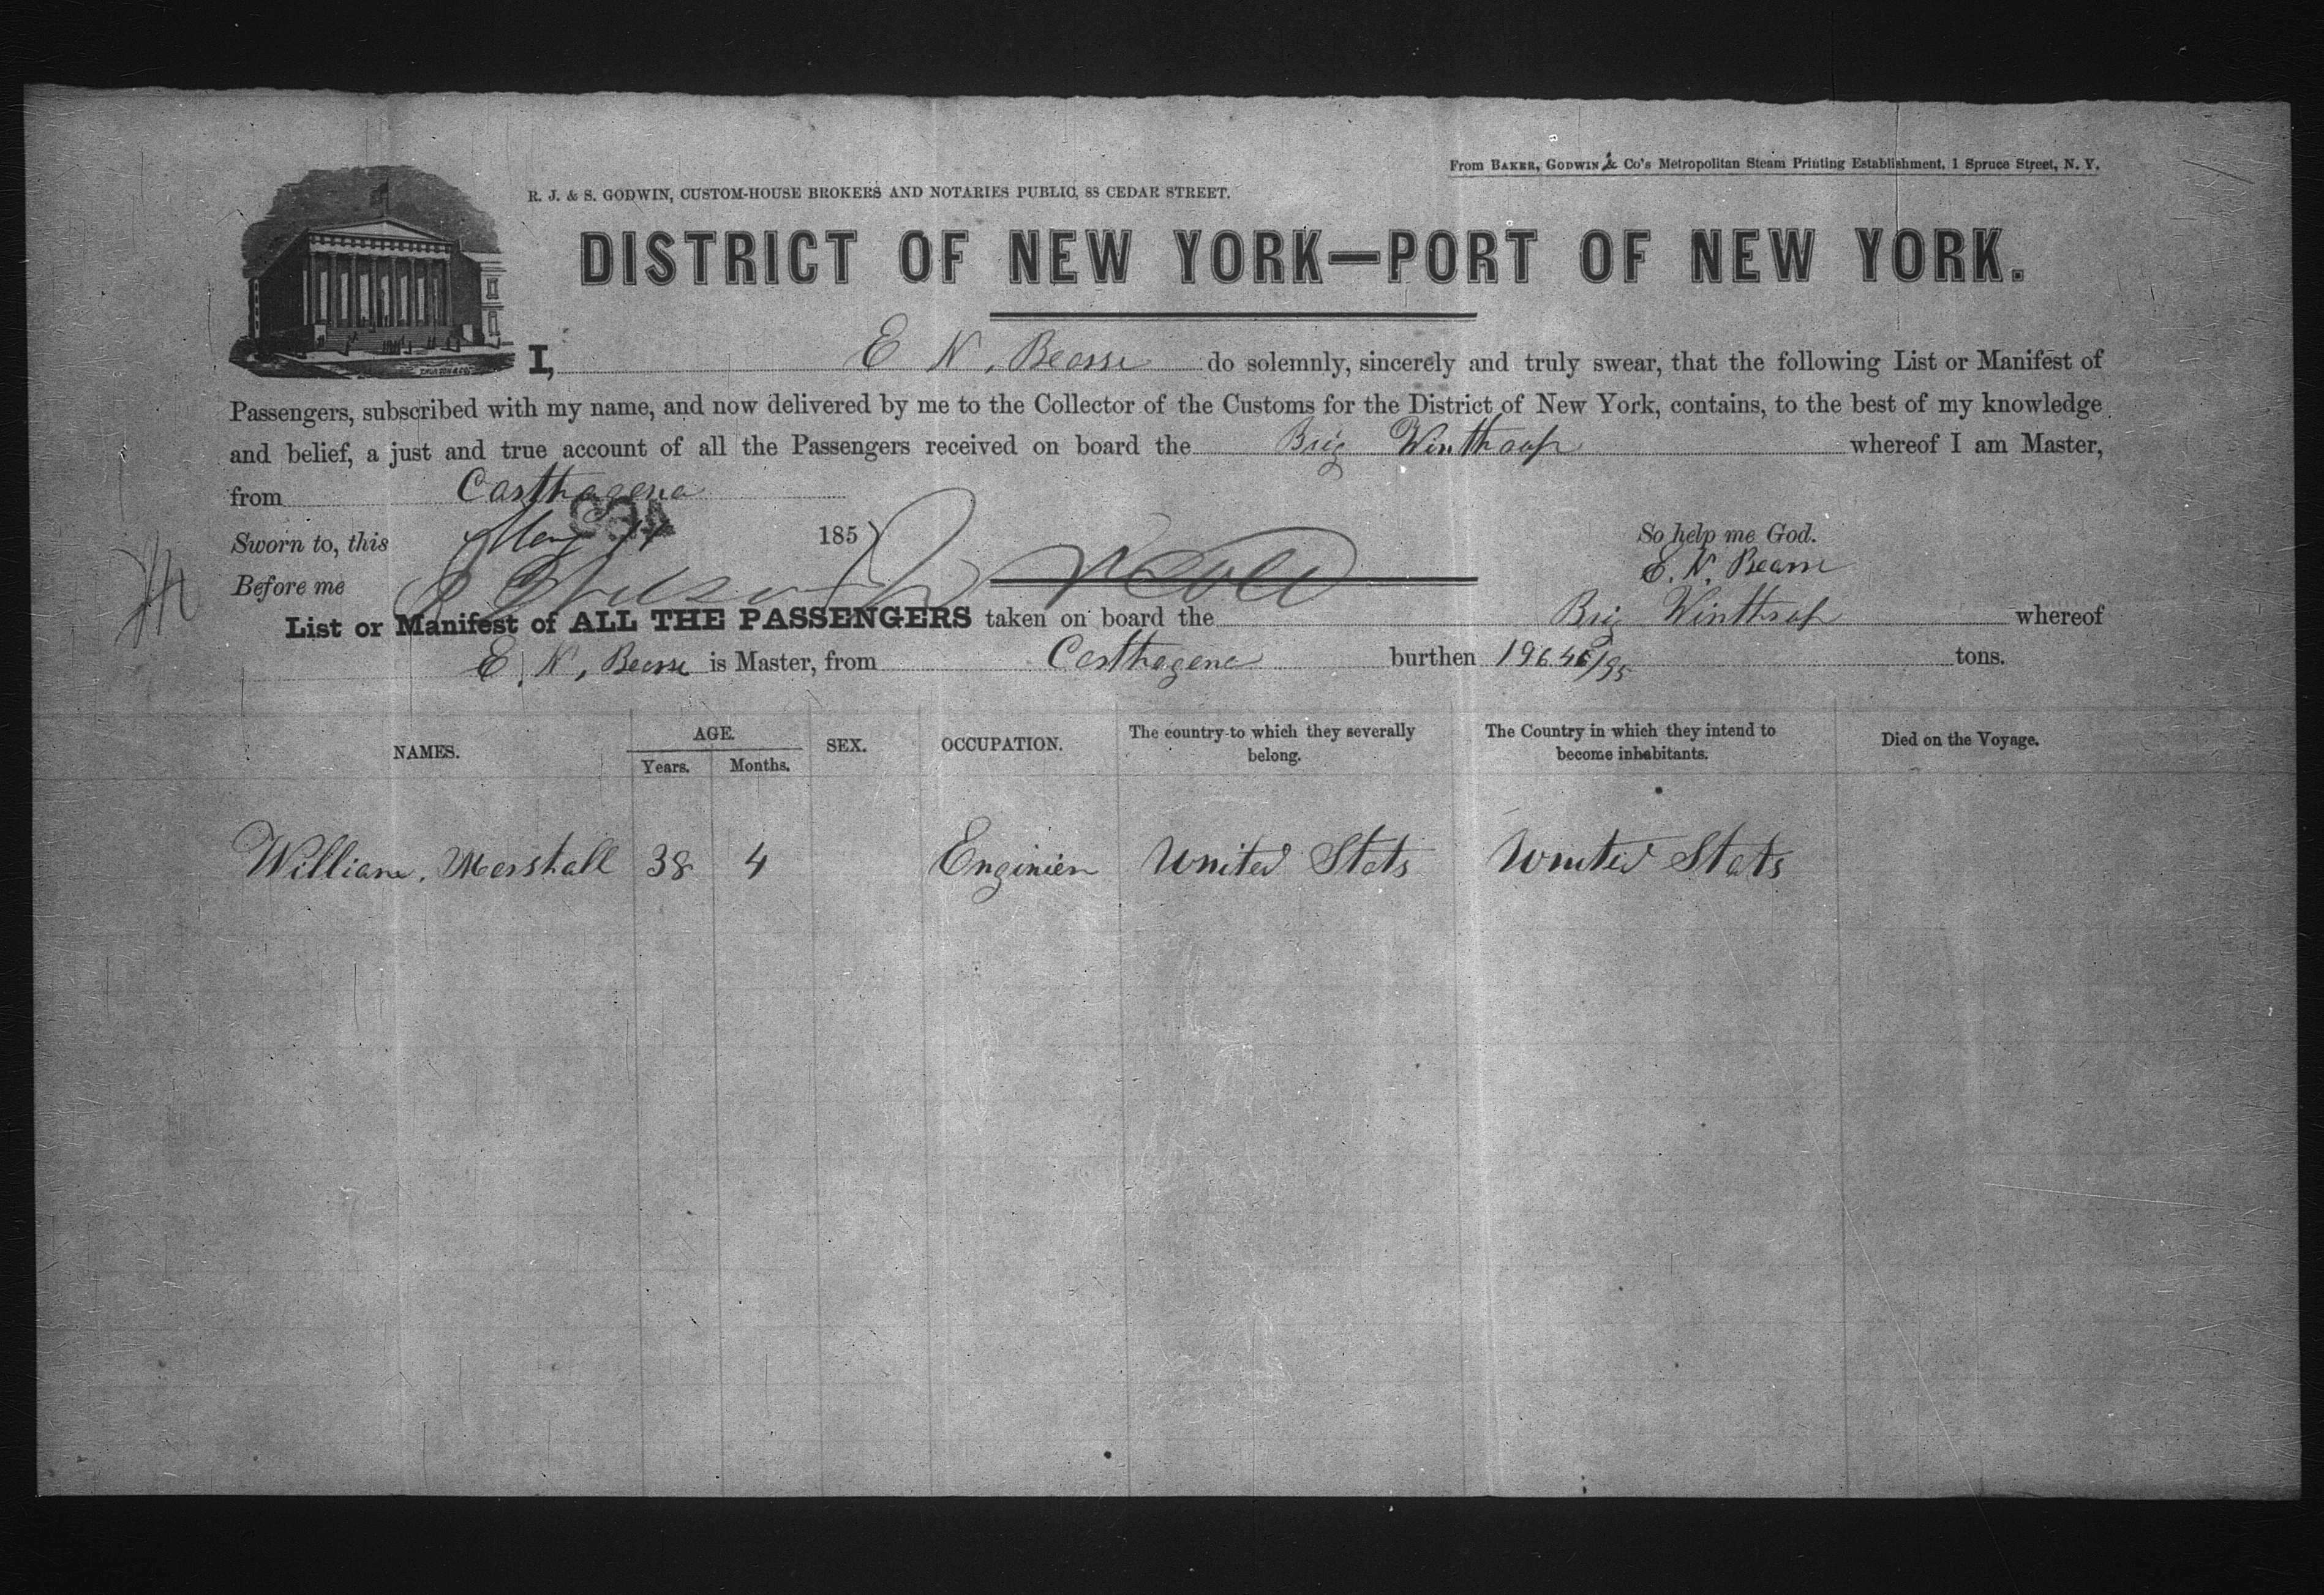 From BAKER, GODWIN & Co's Metropolitan Steam Printing Establishment, 1 Spruce Street, N. Y.
R. J. & S. GODWIN, CUSTOM-HOUSE BROKERS AND NOTARIES PUBLIC, 88 CEDAR STREET.
DISTRICT OF NEW YORK—PORT OF NEW YORK.
I, E N. Bearse do solemnly, sincerely and truly swear, that the following List or Manifest of
Passengers, subscribed with my name, and now delivered by me to the Collector of the Customs for the District of New York, contains, to the best of my knowledge
and belief, a just and true account of all the Passengers received on board the Brig Winthrop whereof I am Master,
from Carthagena
Sworn to, this May 14 185 So help me God.
Before me E. N. Bearse
List or Manifest of ALL THE PASSENGERS taken on board the Brig Winthrop whereof
E. N. Bearse is Master, from Carthagena burthen tons.
NAMES. AGE. Years. Months. SEX. OCCUPATION. The country to which they severally belong. The Country in which they intend to become inhabitants. Died on the Voyage.
William. Marshall 38 4 Enginier United Stats United Stats